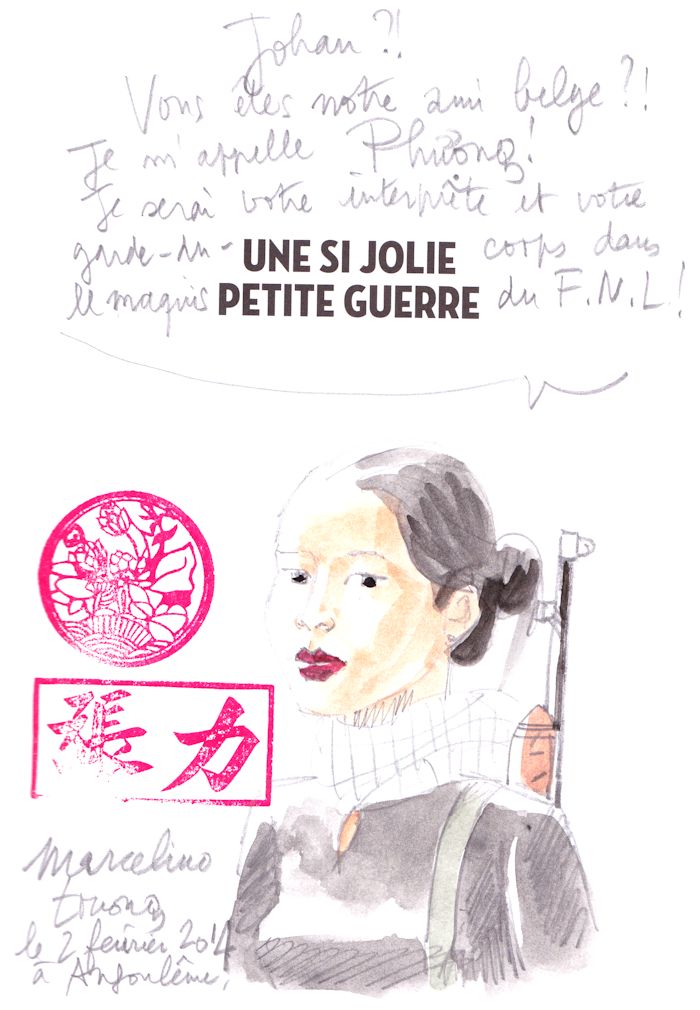 Johan ?!
Vous êtes notre ami belge ?!
Je m'appelle Phương !
Je serai votre interprète et votre
garde-du- corps dans
le maquis du F.N.L. !
UNE SI JOLIE
PETITE GUERRE
張力
Marcelino
truong
le 2 février 2014
à Angoulême.